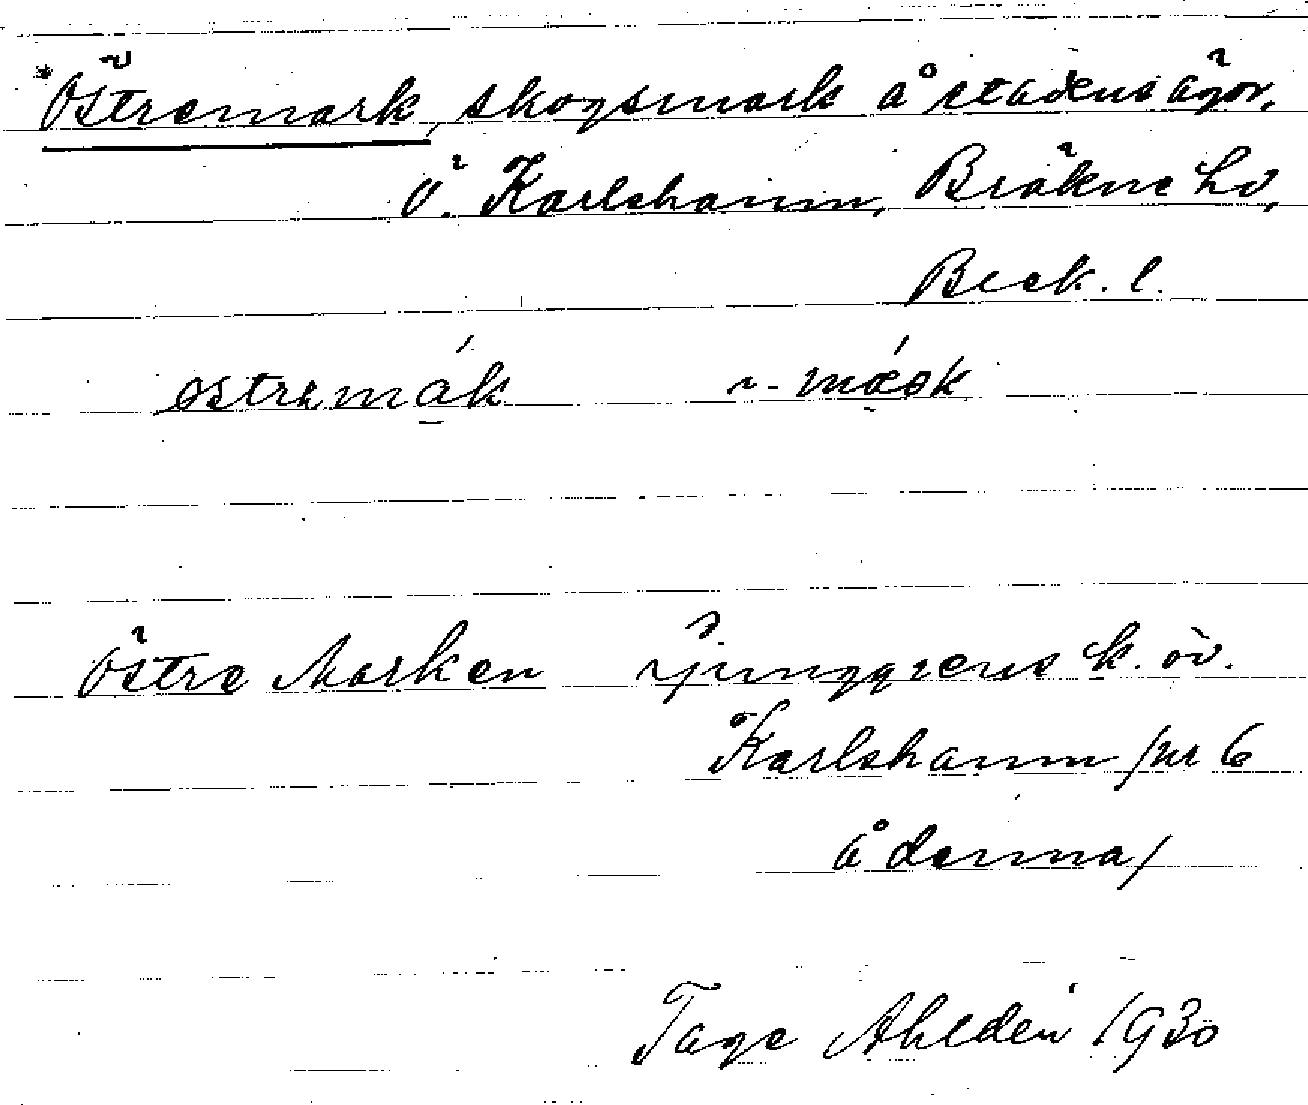 *Östremark, skogsmark å stadens ägor,
Ö. Karlshamn, Bräkne hd,
Blek. l.
östremák ~- mask
Östre Marken Ljunggrens k. öv.
Karlshamn /nr 6
å denna/
Tage Ahldén 1930